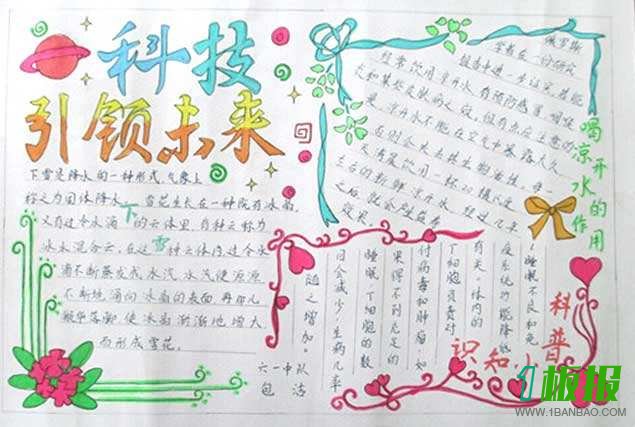 科技
引领未来
下雪是降水的一种形式,气象上
称之为固体降水。雪花生长在一种既有冰晶,
又有过冷水滴的云体里,有种云称为
冰水混合云,在这种云体内,过冷水
滴不断蒸发成水汽,水汽便源源
不断地涌向冰晶的表面,再那儿
凝华落脚,使冰晶渐渐地增大,
而形成雪花。
下
雪
六一中队
包洁
俄罗斯
学者在一时研究
报告中进一步证实,若能
经常饮用凉开水,有预防感冒,咽喉
炎和某些皮肤病之效。但有点应注意的
是,凉开水不能在空气中暴露太久,
否则会失去其生物活性。每
天清晨饮用一杯20摄氏度
左右的新鲜凉开水,经过几年
之后,就会产生奇
效果。
喝凉开水的作用
!睡眠不良和免
疫系统功能降低
有关。体内的
T细胞负责对
付病毒和肿瘤,如
果得不到充足的
睡眠,T细胞的数
目会减少,生病几率
随之增加。
科普
小知识
1板报
WWW.1BANBAO.COM